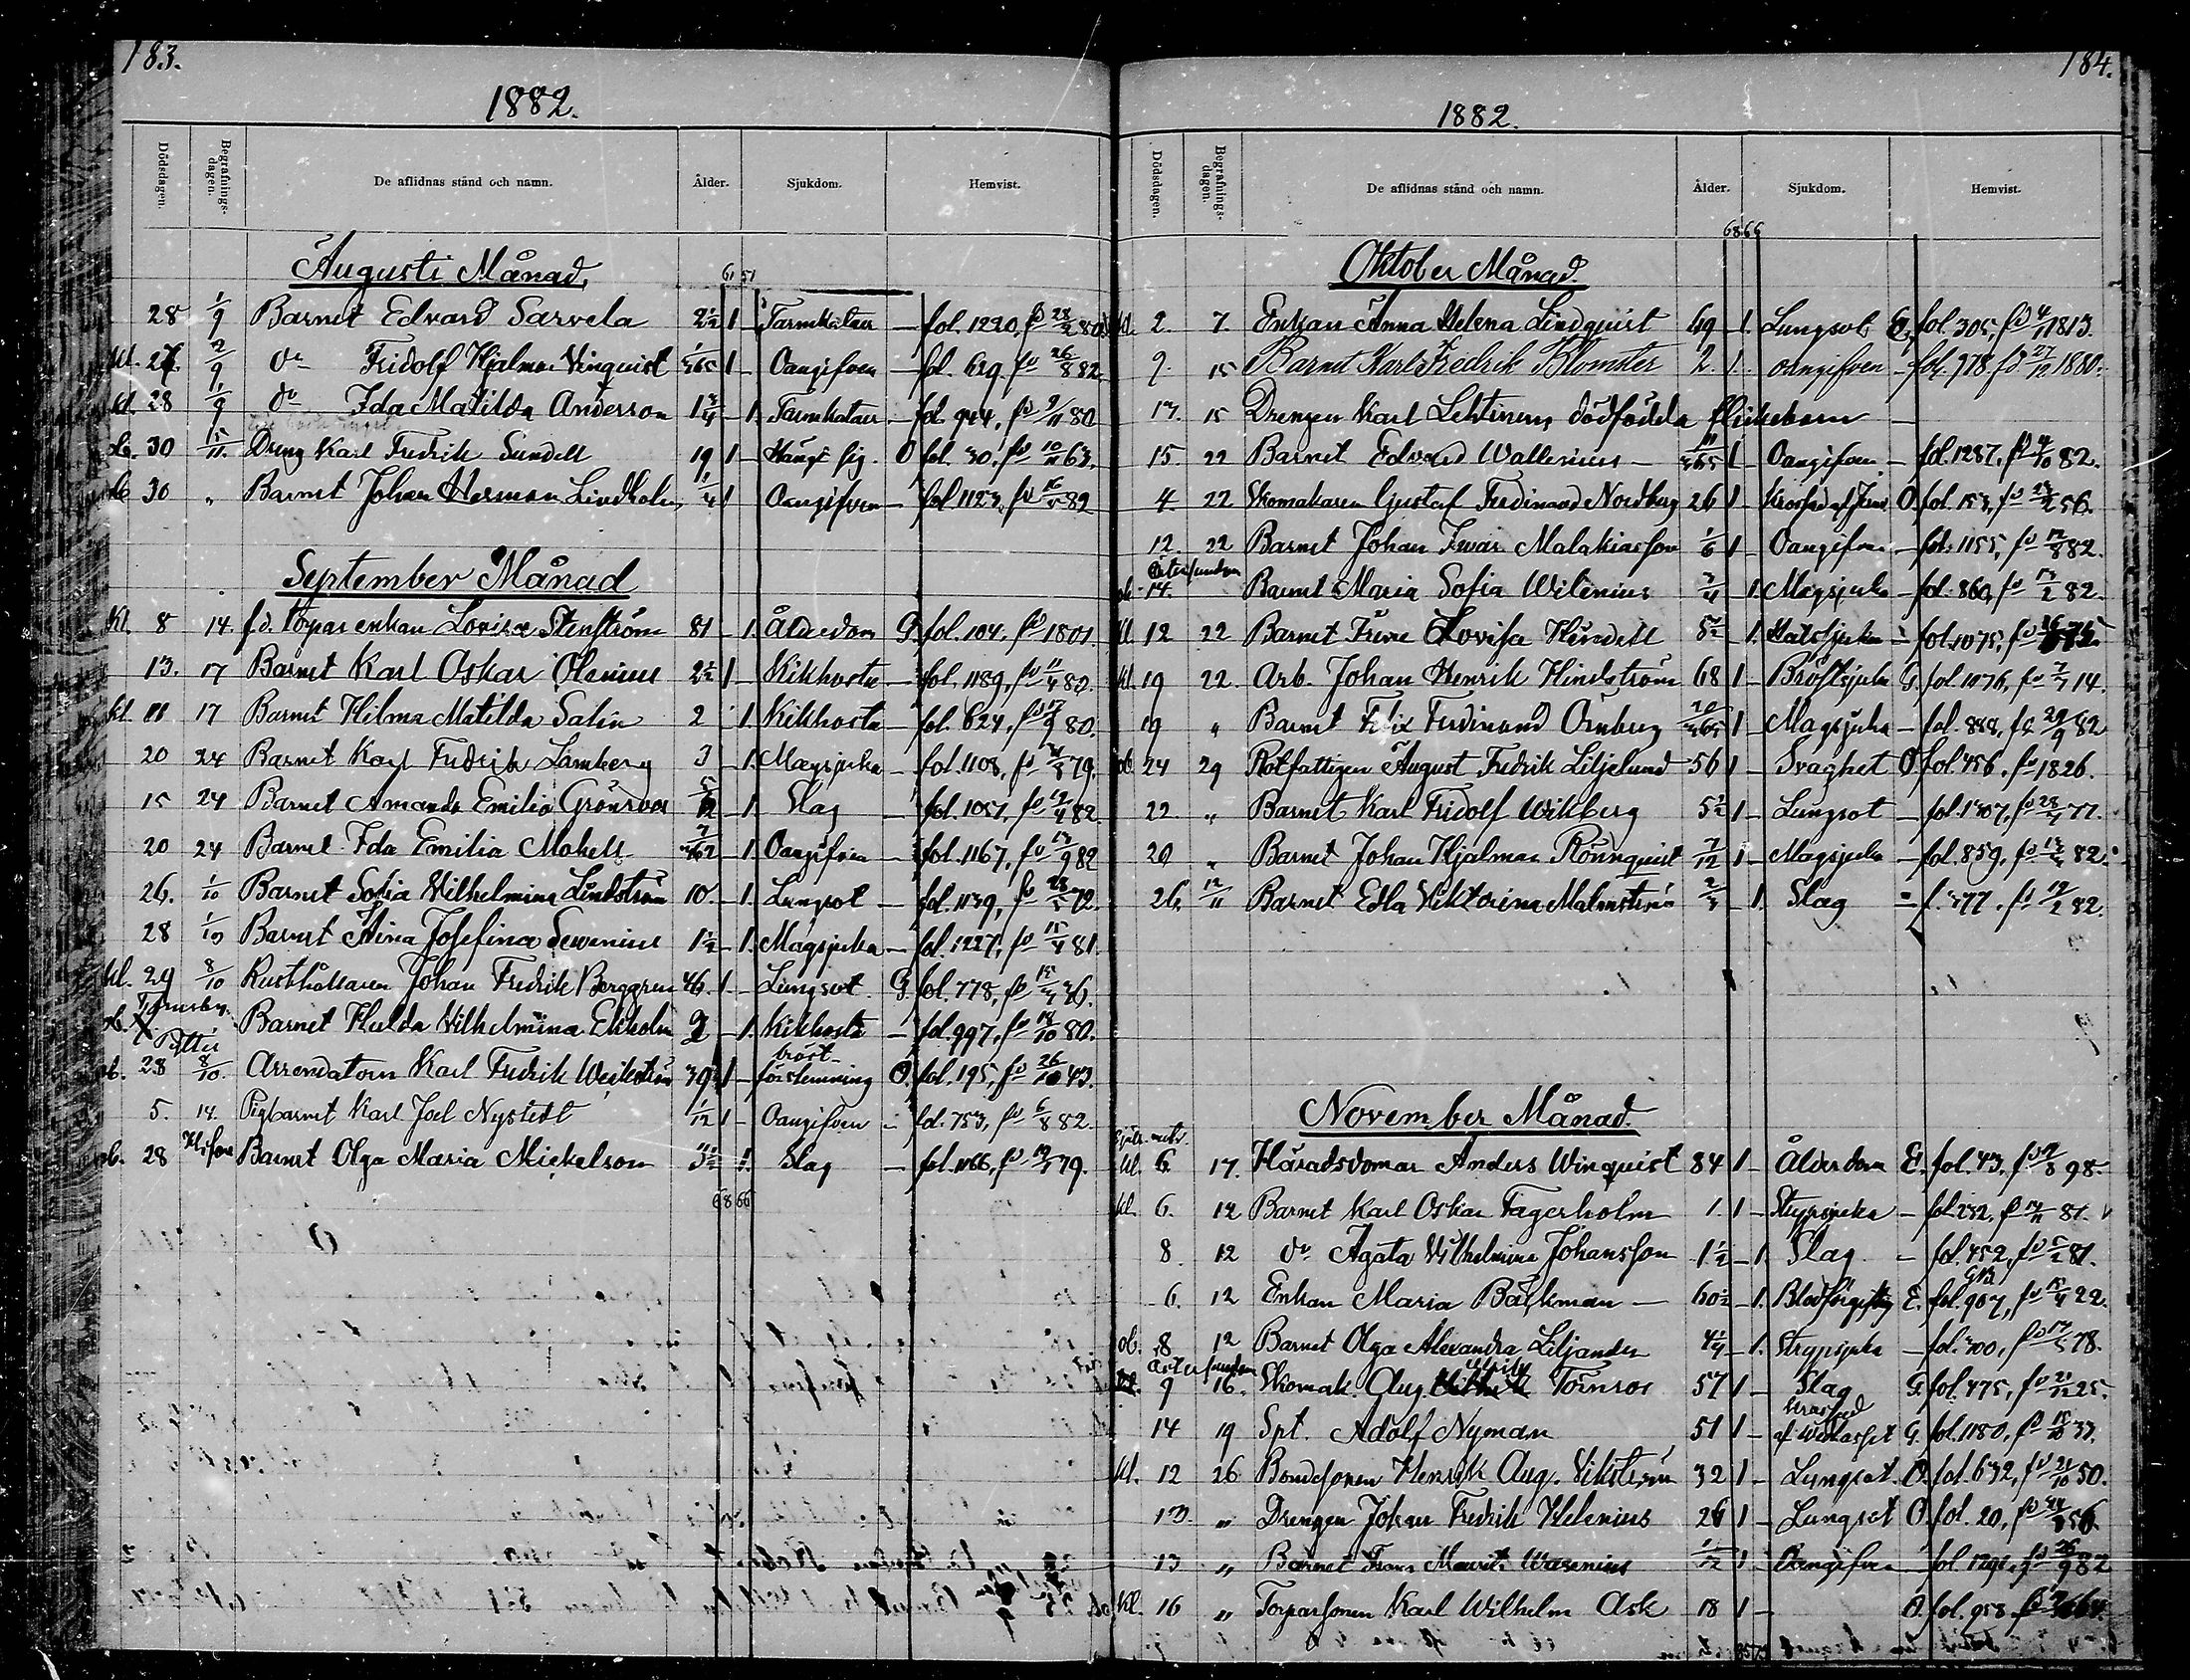 183.
1882.
Dödsdagen. Begrafningsdagen. De aflidnas stånd och namn. Ålder. Sjukdom. Hemvist.
Augusti Månad.
61 51
28 1/9 Barnet Edvard Sarvela 2 1/2 1 – Tarmkatarr – fol. 1220, fd 28/2 80
kl. 27. 2/9 do Fridolf Hjalmar Vinquist 1/365 1 – Oangifven – fol. 629. fd 26/8 82.
kl. 28 1/9 do Ida Matilda Anderson 1 3/4 – 1. Tarmkatarr – fol. 944, fd 9/11 80
ob. 30 5/11. Dreng Karl Fredrik Sundell 19 1 – Hängt sig. O fol. 30, fd 10/11 63.
ob 30 „ Barnet Johan Herman Lindholm 1/4 1 Oangifven – fol 1123, fd 82
September Månad
kl. 8 14. fd. Torparenkan Lovisa Stenström 81 – 1. Ålderdom G. fol. 104. fd 1801.
13. 17 Barnet Karl Oskar Olenius 2 1/2 1 – Kikhosta – fol. 1189, fd 11/4 82.
kl. 11 17 Barnet Hilma Matilda Salin 2 1. Kikhosta – fol. 624, fd 80.
20 24 Barnet Karl Fredrik Lamberg 3 – 1. Magsjuka – fol. 1108, fd 79.
15 24 Barnet Amanda Emilia Grönroos 5/12 – 1. Slag – fol. 1057, fd 12/4 82.
20 24 Barnet Ida Emilia Makell – 1. Oangifven – fol. 1167, fd 13/9 82
26. 1/10 Barnet Sofia Vilhelmina Lindström 10. – 1. Lungsot – fol. 1139, fd 28/5 72.
28 1/10 Barnet Aina Josefina Sevenius 1 1/2 – 1. Magsjuka – fol. 1227, fd 15/4 81.
kl. 29 8/10 Rusthållaren Johan Fredrik Berggren 46. 1 – Lungsot. G. fol. 778, fd 36.
ob. Barnet Hulda Vilhelmina Ekholm 2 – 1. Kikhosta – fol. 997, fd 18/10 80.
Pyttis
ob. 28 8/10. Arrendatorn Karl Fredrik Weckström 39 1 – bröstförstemning O. fol. 195, fd 26/10 43.
5. 14. Pigbarnet Karl Joel Nystedt 1/12 1 – Oangifven – fol. 753, fd 6/8 82.
ob. 28 Barnet Olga Maria Mickelson 3 1/2 1. Slag – fol. 1166, fd 79.
68 66
184.
1882.
Dödsdagen. Begrafningsdagen. De aflidnas stånd och namn. Ålder. Sjukdom. Hemvist.
68 66
Oktober Månad.
kl. 2. 7. Enkan Anna Helena Lindquist 69 – 1. Lungsot E. fol. 305, fd 4/11 1813.
9. 15 Barnet Karl Fredrik Blomster 2. 1. oangifven – fol. 978 fd 27/12 1880.
13. 15 Drengen Karl Lehtinens dödfödda flickebarn –
15. 22 Barnet Edvard Wallenius – 11/365 1 – Oangifven – fol. 1287, fd 4/10 82.
4. 22 Skomakaren Gustaf Ferdinand Nordberg 26 1 – O. fol. 153, fd 23/2 56.
12. 22 Barnet Johan Iwar Malakiasson 1/6 1 – Oangifven – fol. 1155, fd 82.
Östersundom
ob. 14. Barnet Maria Sofia Wilenius 3/4 – 1. Magsjuka – fol. 860, fd 13/2 82.
kl. 12 22 Barnet Lovisa Hindell – 1. Halssjuka – fol. 1075, fd
kl. 19 22. Arb. Johan Henrik Hindström 68 1 – Bröstsjuka G. fol 1076, fd 14.
19 „ Barnet Felix Ferdinand Örnberg 20/365 1 – Magsjuka – fol. 888, fd 29/9 82
ob. 24 29 Rotfattigen August Fredrik Liljelund 56 1 – Svaghet O fol. 456, fd 1826.
22. „ Barnet Karl Fridolf Wikberg 5 1/2 1 – Lungsot – fol. 1307, fd 77.
20 „ Barnet Johan Hjalmar Rönnquist 7/12 1 – Magsjuka – fol. 859, fd 82.
26. 12/11 Barnet Edla Viktorina Malmström 2/3 – 1. Slag – f. 377, fd 19/2 82.
November Månad.
kl. 6. 17. Häradsdomar Anders Winquist 84 1 – Ålderdom E. fol. 43, fd 98.
kl. 6. 12 Barnet Karl Oskar Fagerholm 1. 1 – Strypsjuka – fol. 232, fd 81.
8. 12 do Agata Vilhelmina Johansson 1 1/2 – 1. Slag – fol. 452, fd 81.
6. 12 Enkan Maria Bäckman – 60 1/2 – 1. Blodförgiftng E. fol. 907, fd 15/4 22.
ob. 8 12 Barnet Olga Alexandra Liljander 4 1/4 – 1. Strypsjuka – fol. 300, fd 78.
Östersundom
9 16. Skomak. Aug. Ulrik Törnroos 57 1 – Slag G. fol. 475, fd 21/12 25.
14 19 Spt. Adolf Nyman 51 1 – G. fol. 1180, fd 31.
kl. 12 26 Bondesonen Henrik Aug. Vikström 32 1 – Lungsot. O. fol. 632, fd 21/10 50.
13. „ Drengen Johan Fredrik Helenius 26 1 – Lungsot O. fol. 20, fd 56.
13 „ Barnet Frans Maurits Wasenius 1/12 1 Oangifven – fol 1291, fd 26/9 82
kl. 16 „ Torparsonen Karl Wilhelm Ask 18 1 – O. fol. 958